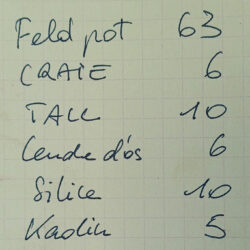 Feld pot 63
CRAIE 6
TALC 10
Cendre d'os 6
Silice 10
Kaolin 5